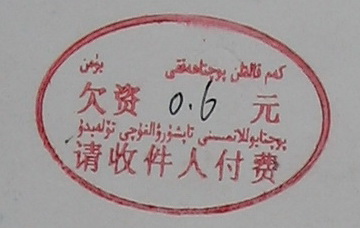 كەم قالغان پوچتاھەققى يۈەن
欠资 0.6 元
پوچتايوللانمىسىنى تاپشۇرۇۋالغۇچى تۆلەيدۇ
请收件人付费